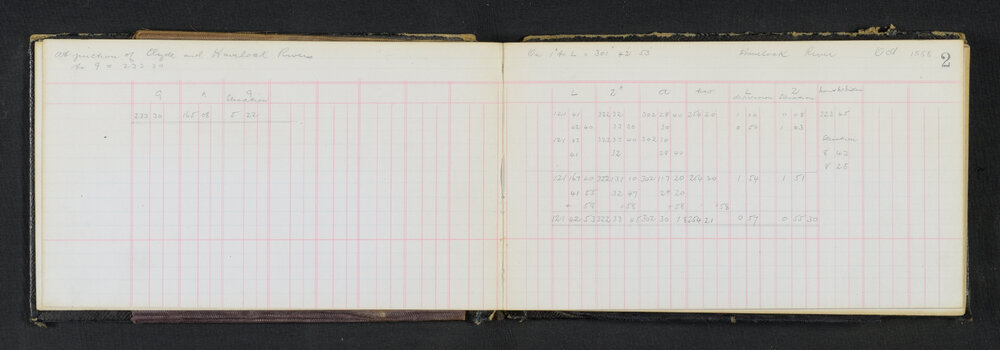 At junction of Clyde and Havelock Rivers
to 9 = 233 30
9 K 9
Elevation
233 30 165 08 5 22
On 1 to L = 301 42 53 Havelock River Oct 1888 2
L Z a
Elevation Elevation
121 41 322 32 302 28 40 254 20 0 08 323 45
42 40 33 20 30 0 59 1 43
121 43 322 33 40 302 30 Elevation
41 32 28 40 8 42
8 28
121 167 40 322 131 10 302 117 20 254 20 1 54 1 51
41 55 32 47 29 20
+ 58 +58 +58 +58
121 42 53 322 33 45 302 30 18 254 21 0 57 0 55 30